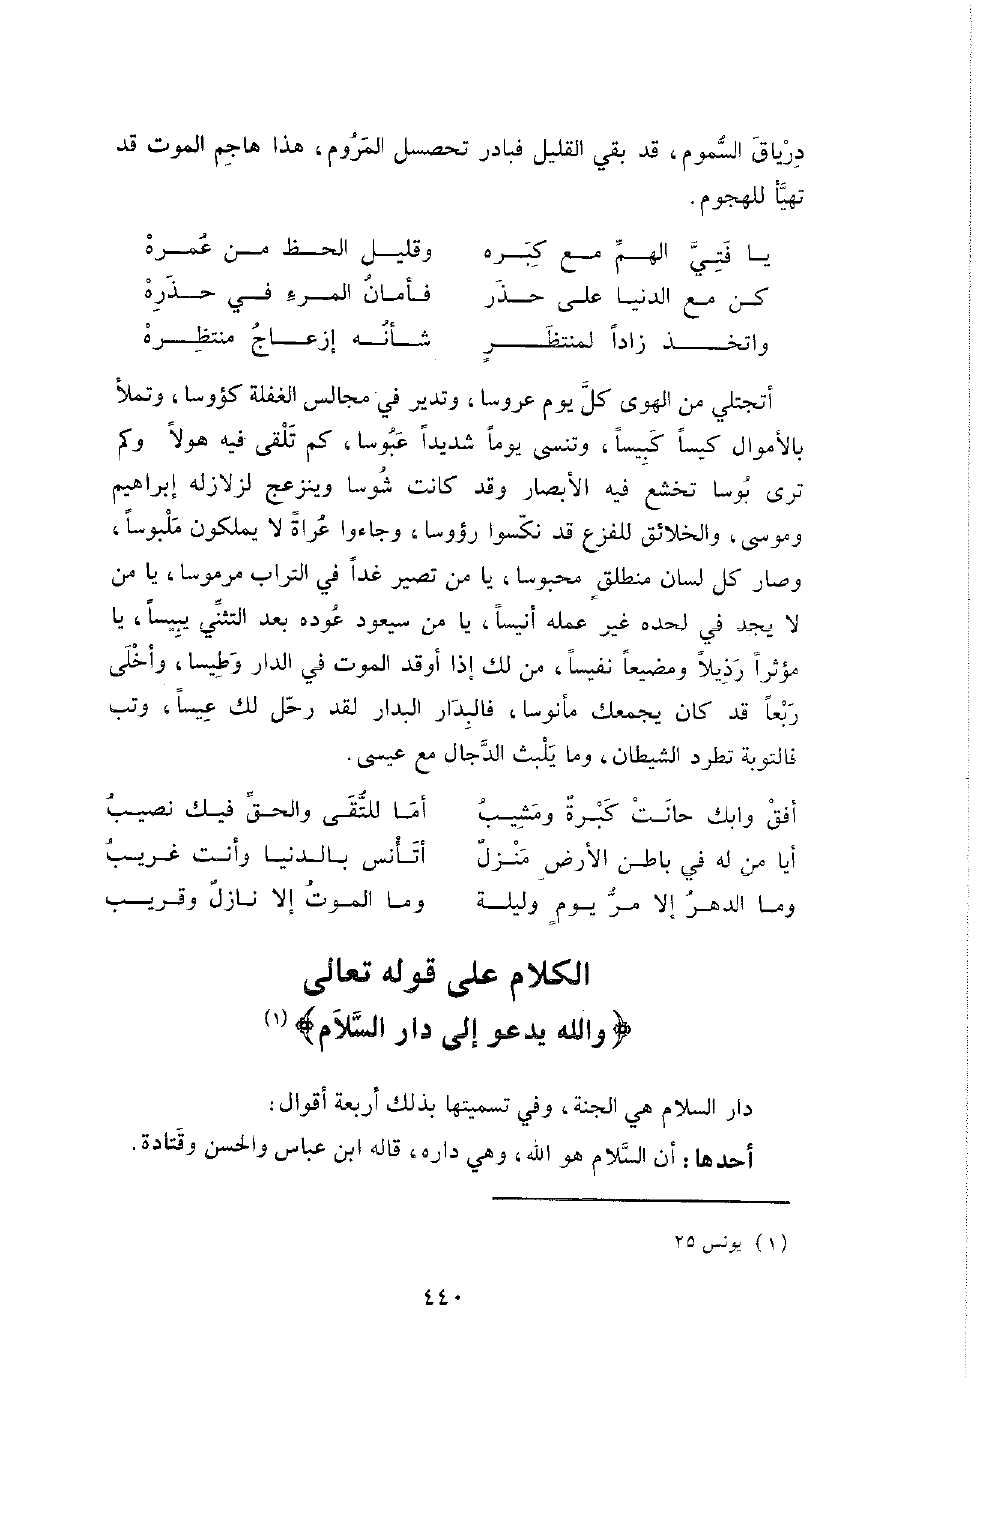 دِرْياقَ السُّموم، قد بقي القليل فبادر تحصل المَرُوم، هذا هاجِم الموت قد
تهيَّأ للهجوم.
يا فَتِيَّ الهمِّ مع كِبَره وقليل الحظ من عُمرهْ
كن مع الدنيا على حذَر فأمانُ المرء في حذَرِهْ
واتخذ زاداً لمنتظَرٍ شأنُه إزعاجُ منتظِرهْ
أتجتلي من الهوى كلَّ يوم عروسا، وتدير في مجالس الغفلة كؤوسا، وتملأ
بالأموال كيساً كَبِيساً، وتنسى يوماً شديداً عَبُوسا، كم تَلْقى فيه هولاً وكم
ترى بُوسا تخشع فيه الأبصار وقد كانت شُوسا وينزعج لزلازله إبراهيم
وموسى، والخلائق للفزع قد نكّسوا رؤوسا، وجاءوا عُراةً لا يملكون مَلْبوساً،
وصار كل لسان منطلقٍ محبوسا، يا من تصير غداً في التراب مرموسا، يا من
لا يجد في لحده غير عمله أنيساً، يا من سيعود عُوده بعد التثنِّي يبيساً، يا
مؤثراً رَذِيلاً ومضيعاً نفيساً، من لك إذا أوقد الموت في الدار وَطِيسا، وأخْلَى
رَبْعاً قد كان يجمعك مأنوسا، فالبِدَار البدار لقد رحّل لك عِيساً، وتب
فالتوبة تطرد الشيطان، وما يَلْبث الدَّجال مع عيسى.
أفقْ وابك حانَتْ كَبْرةٌ ومَشِيبُ أمَا للتُّقَى والحقِّ فيك نصيبُ
أيا من له في باطن الأرضِ مَنْزلٌ أتَأنس بالدنيا وأنت غريبُ
وما الدهرُ إلا مرُّ يومٍ وليلة وما الموتُ إلا نازلٌ وقريب
الكلام على قوله تعالى
﴿والله يدعو إلى دار السَّلاَم﴾(١)
دار السلام هي الجنة، وفي تسميتها بذلك أربعة أقوال:
أحدها: أن السَّلام هو الله، وهي داره، قاله ابن عباس والحسن وقَتادة.
(١) يونس ٢٥
٤٤٠